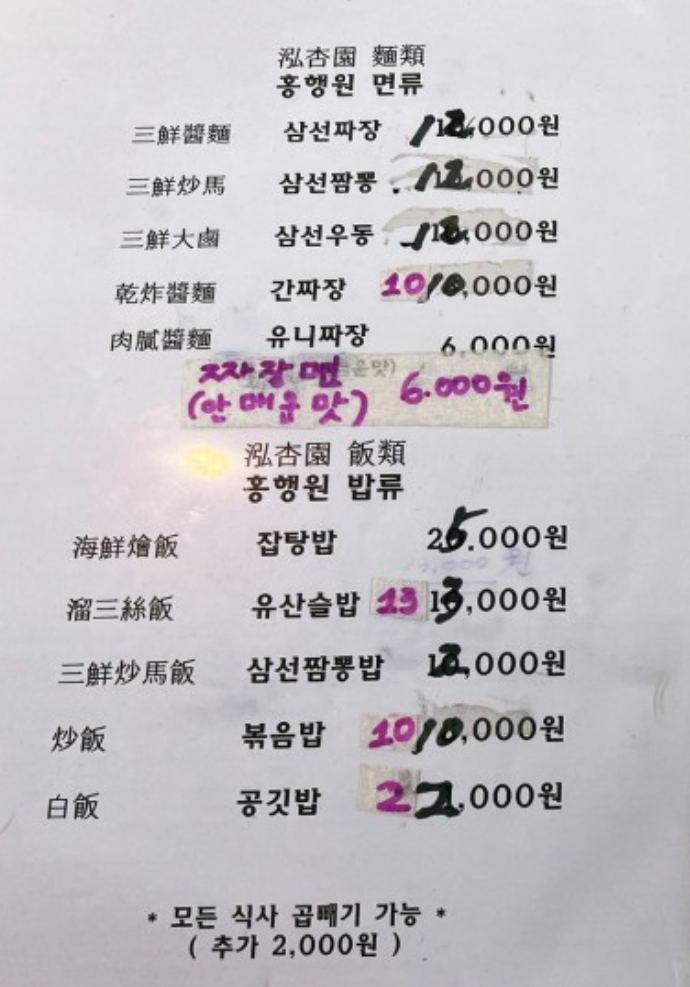 泓杏園 麵類
홍행원 면류
三鮮醬麵 삼선짜장 12,000원
三鮮炒馬 삼선짬뽕 12,000원
三鮮大鹵 삼선우동 12,000원
乾炸醬麵 간짜장 10 10,000원
肉膩醬麵 유니짜장 6,000원
짜장면 6.000원
(안매운맛)
泓杏園 飯類
홍행원 밥류
海鮮燴飯 잡탕밥 25,000원
溜三絲飯 유산슬밥 13 13,000원
三鮮炒馬飯 삼선짬뽕밥 12,000원
炒飯 볶음밥 10 10,000원
白飯 공깃밥 2 2,000원
* 모든 식사 곱빼기 가능 *
( 추가 2,000원 )